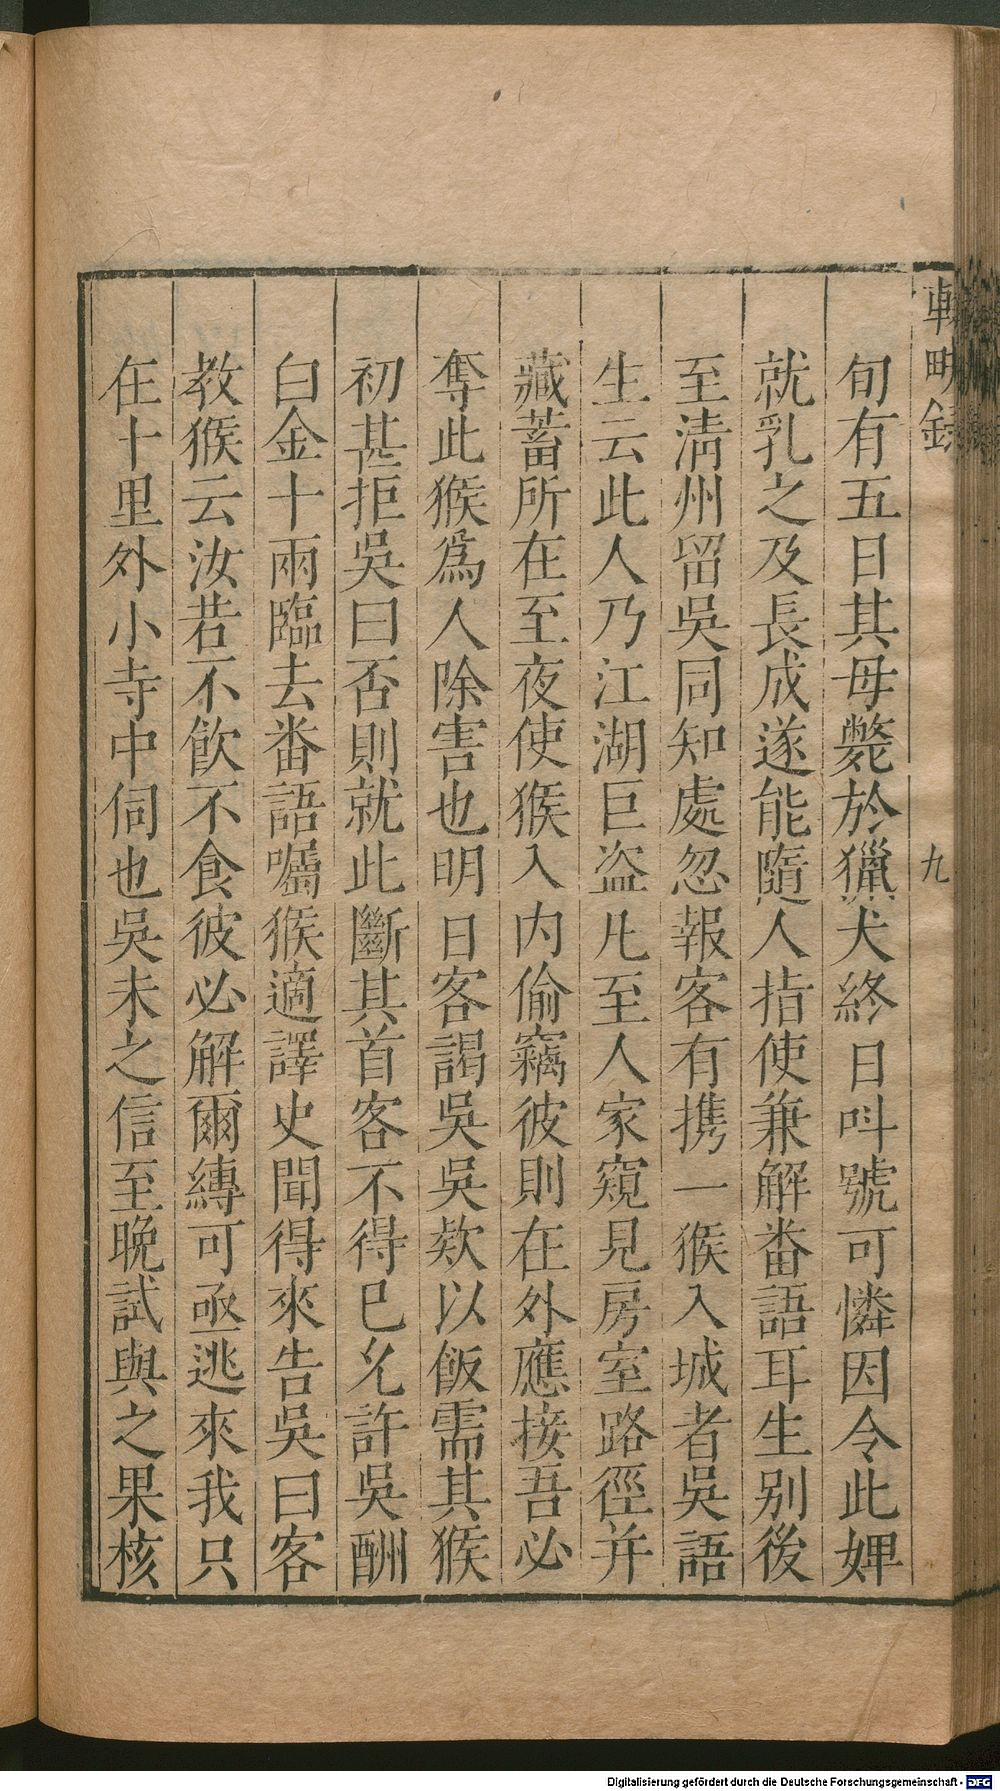 輟畊錄
九
旬有五日其母斃於獵犬終日呌號可憐因令此婢
就乳之及長成遂能隨人指使兼解番語耳生别後
至淸州留吳同知處忽報客有携一猴入城者吳語
生云此人乃江湖巨盜凡至人家窺見房室路徑并
藏蓄所在至夜使猴入内偷竊彼則在外應接吾必
奪此猴爲人除害也明日客謁吳吳欵以飯需其猴
初甚拒吳曰否則就此斷其首客不得已允許吳酬
白金十兩臨去番語囑猴適譯史聞得來告吳曰客
教猴云汝若不飮不食彼必解爾縳可亟逃來我只
在十里外小寺中伺也吳未之信至晚試與之果核
Digitalisierung gefördert durch die Deutsche Forschungsgemeinschaft - DFG